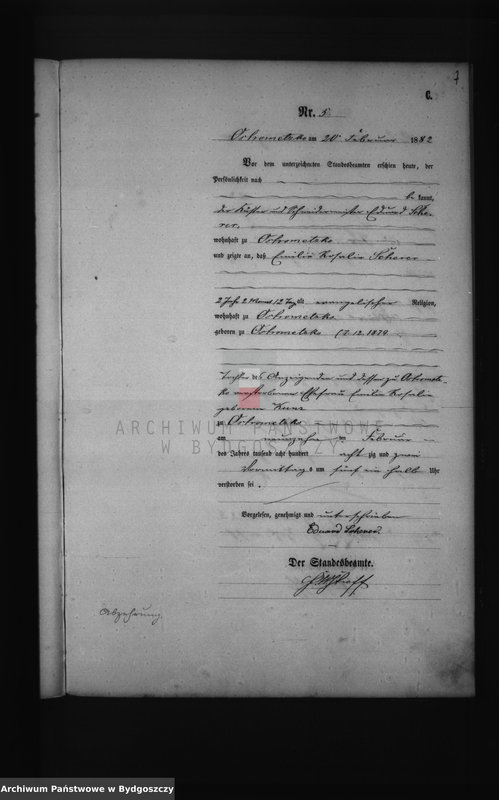 7
C.
Nr. 5.
Ostrometzko am 20. Februar 1882
Vor dem unterzeichneten Standesbeamten erschien heute, der
Persönlichkeit nach
be kannt,
der Küster und Schneidermeister Eduard Sche-
rer,
wohnhaft zu Ostrometzko
und zeigte an, daß Emilie Rosalie Scherer
2 Jahr 2 Monat 12 Tag alt evangelischer Religion,
wohnhaft zu Ostrometzko
geboren zu Ostrometzko 7.12.1879
Tochter des Anzeigenden und dessen zu Ostrometz-
ko verstorbenen Ehefrau Emilie Rosalie
geborene Kunz
zu Ostrometzko
am neunzehn ten Februar
des Jahres tausend acht hundert acht zig und zwei
Vormittags um fünf ein halb Uhr
verstorben sei.
Vorgelesen, genehmigt und unterschrieben
Eduard Scherer.
Der Standesbeamte.
Abzehrung.
ARCHIWUM PAŃSTWOWE
W BYDGOSZCZY
Archiwum Państwowe w Bydgoszczy